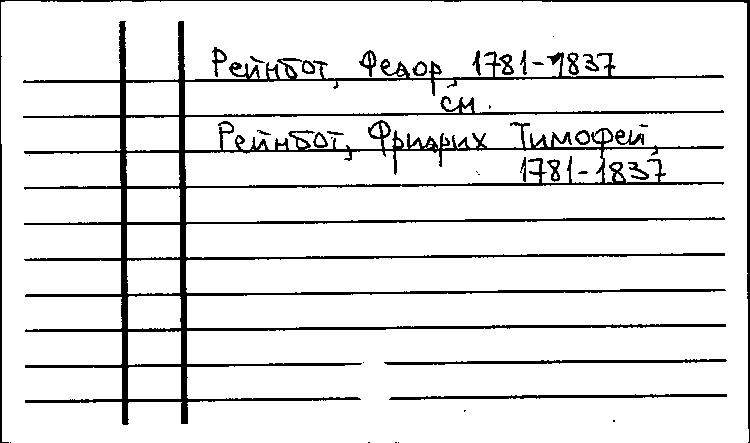 Рейнбот, Федор, 1781-1837
см.
Рейнбот, Фридрих Тимофей,
1781-1837